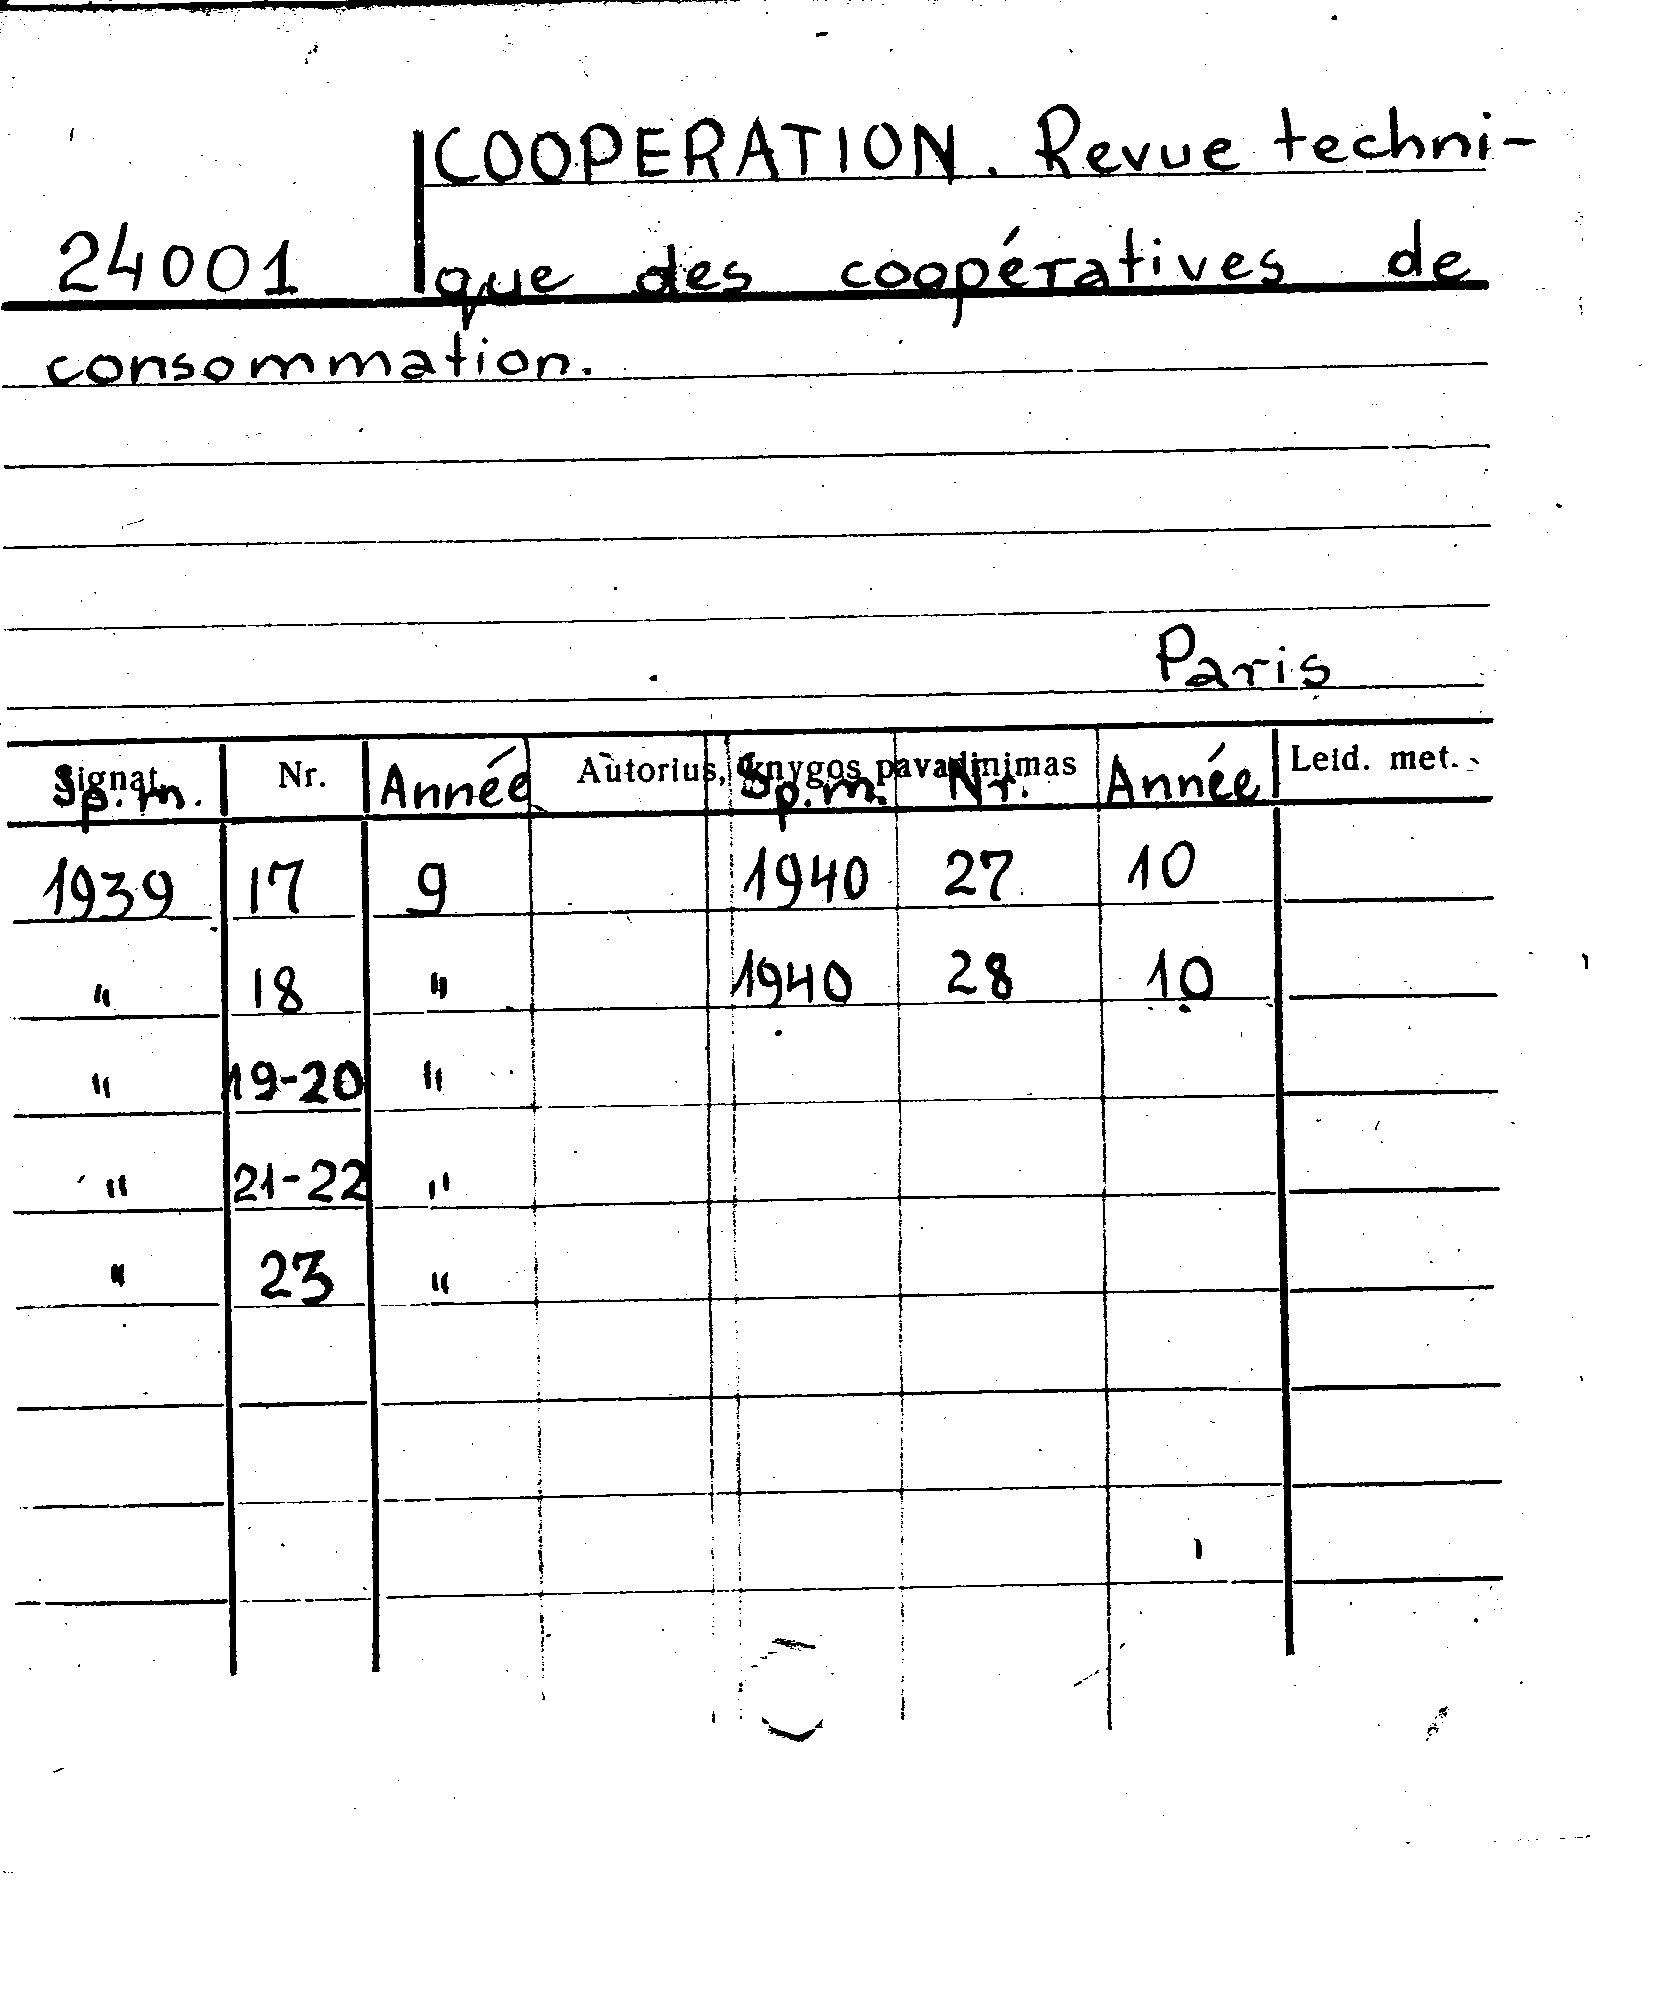 COOPERATION. Revue techni-
24001 que des coopératives de
consommation.
Paris
Signat. Nr. Autorius, knygos pavadinimas Leid. met.
Sp.m. Année Sp.m. Nr. Année
1939 17 9 1940 27 10
" 18 " 1940 28 10
" 19-20 "
" 21-22 "
" 23 "